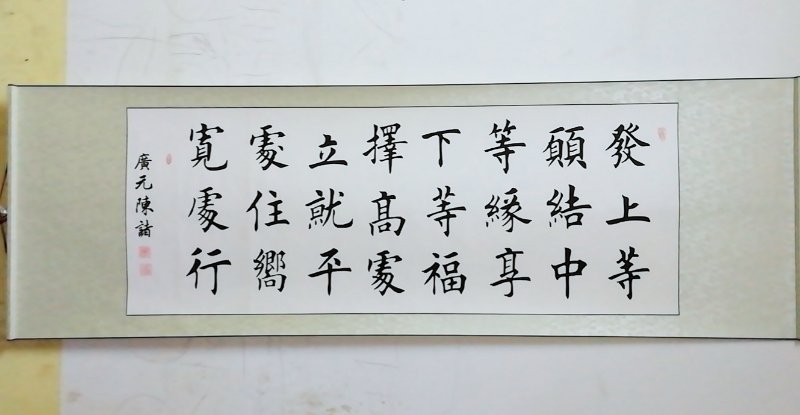 發上等
願結中
等緣享
下等福
擇高處
立就平
處住嚮
寬處行
廣元陳諸